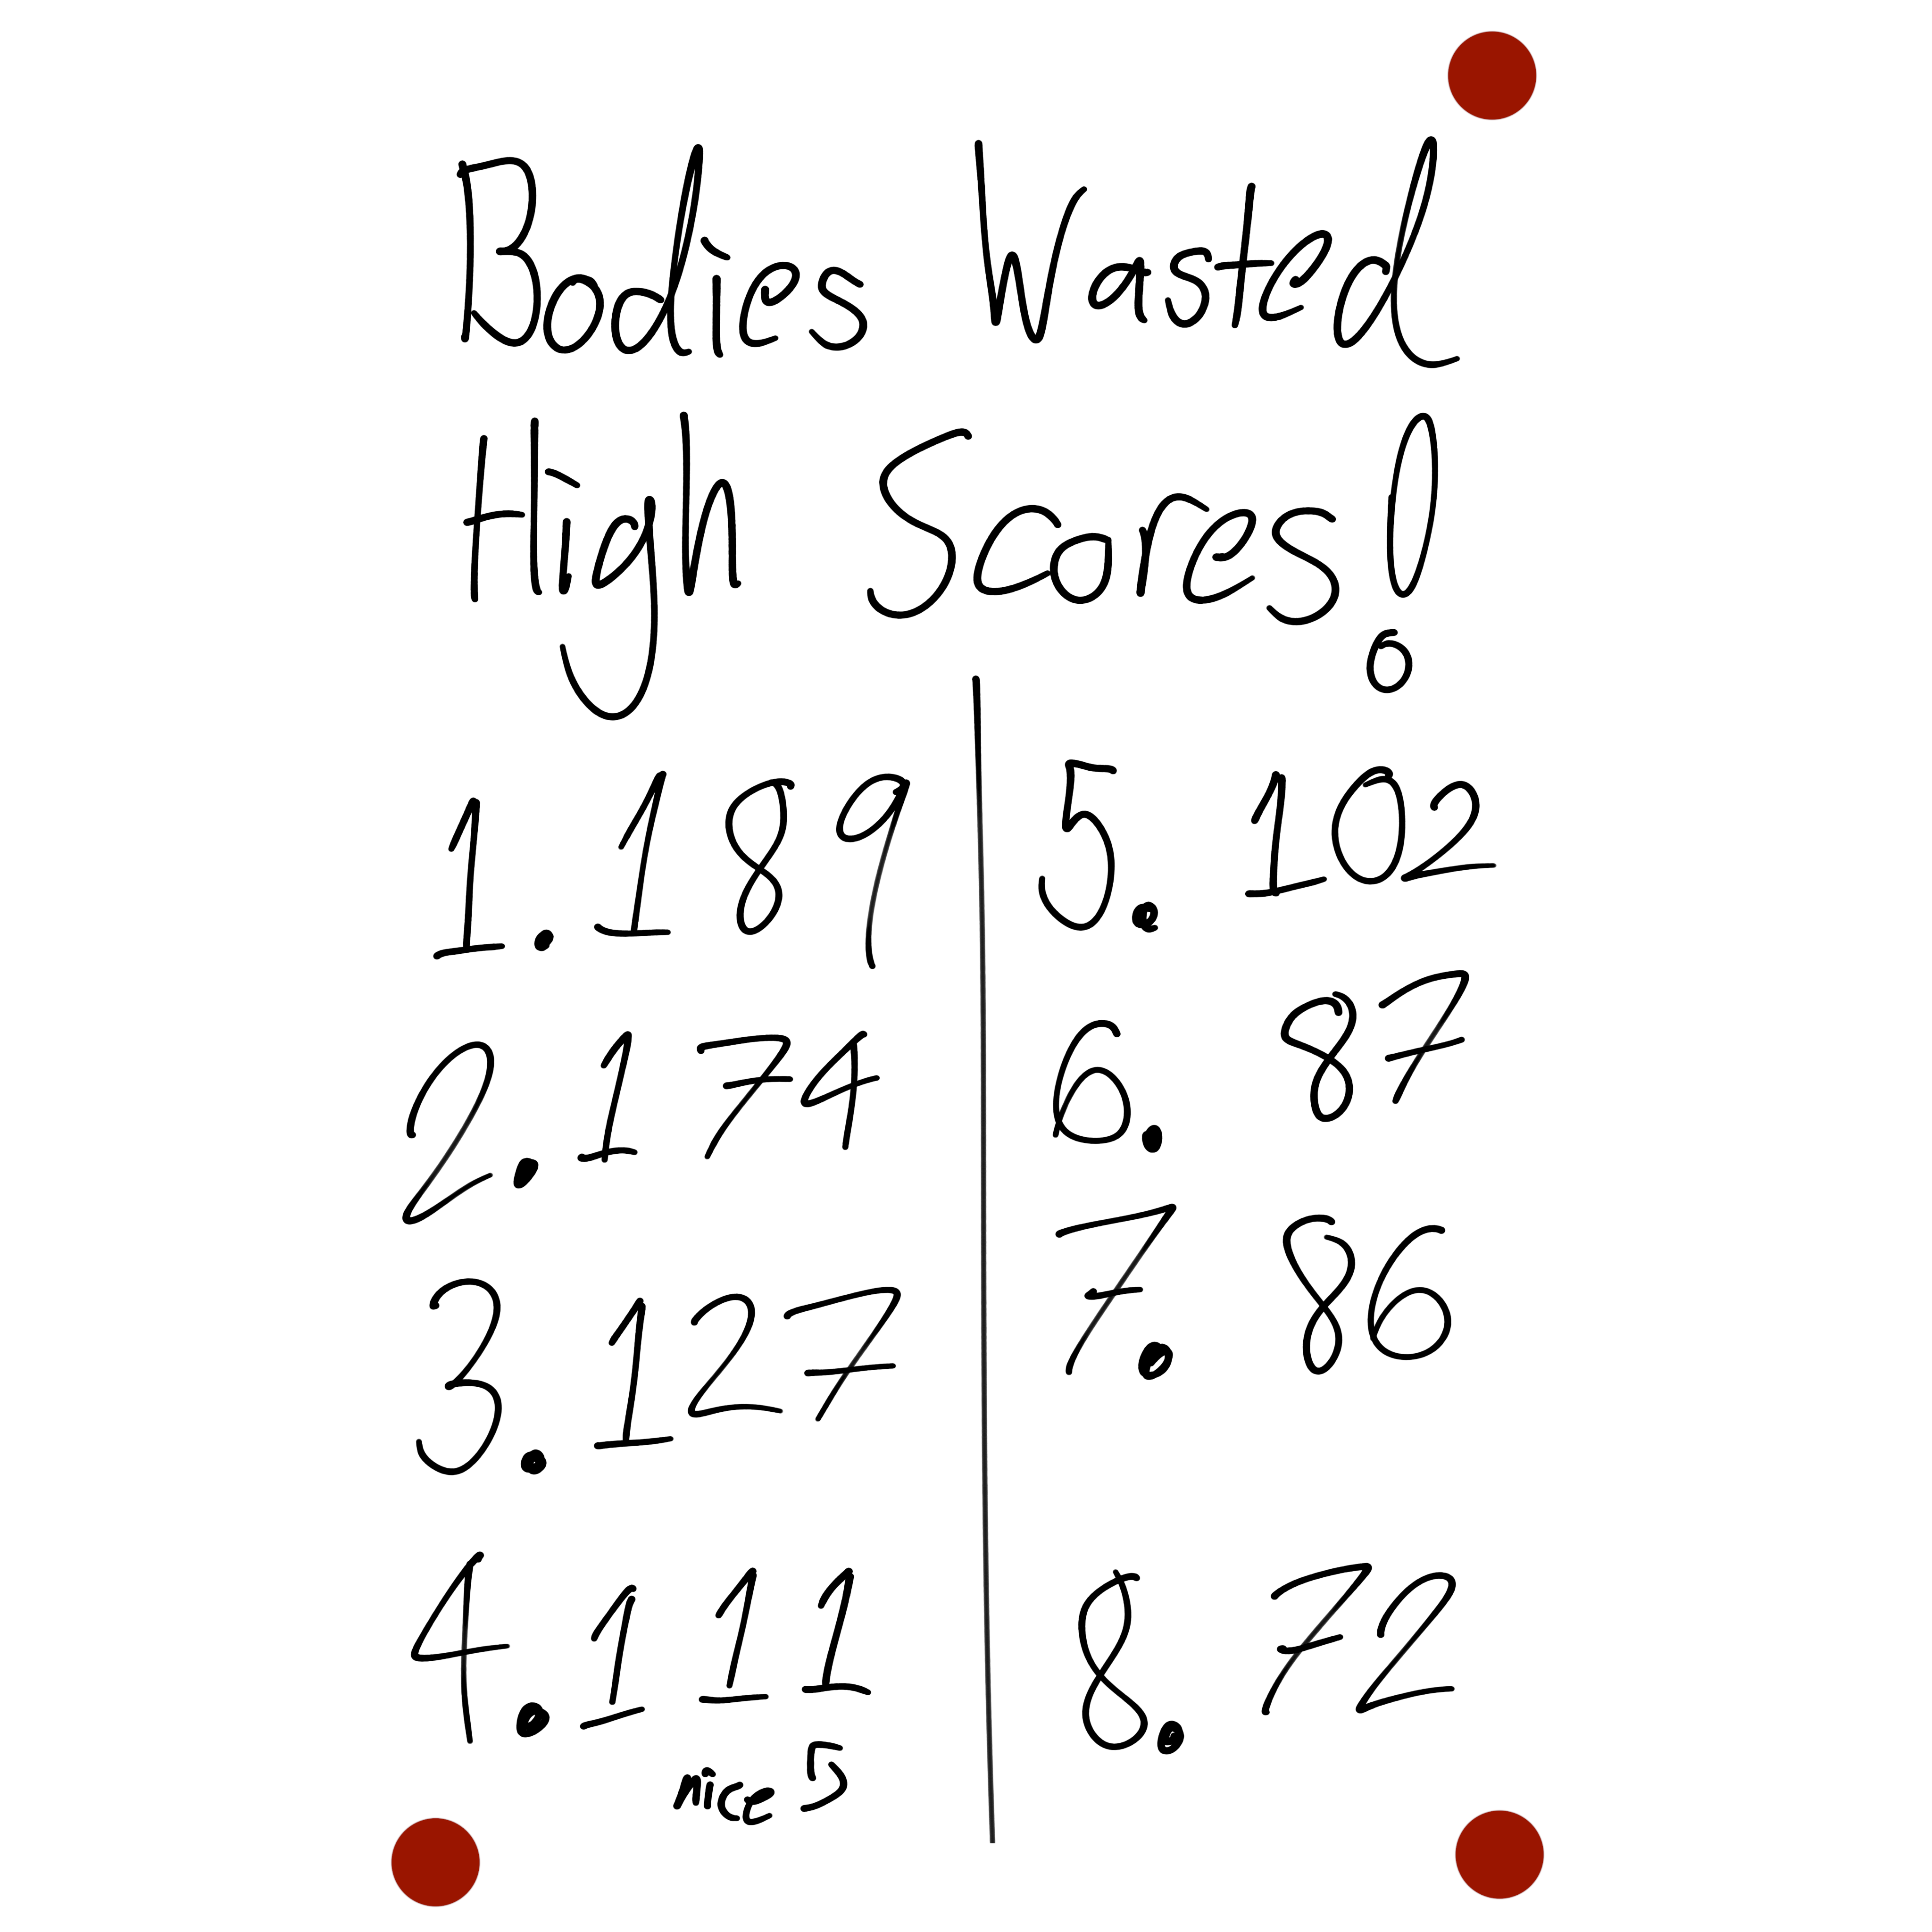 Bodies Wasted
High Scores!
1. 189
2. 174
3. 127
4. 111
nice 5
5. 102
6. 87
7. 86
8. 72